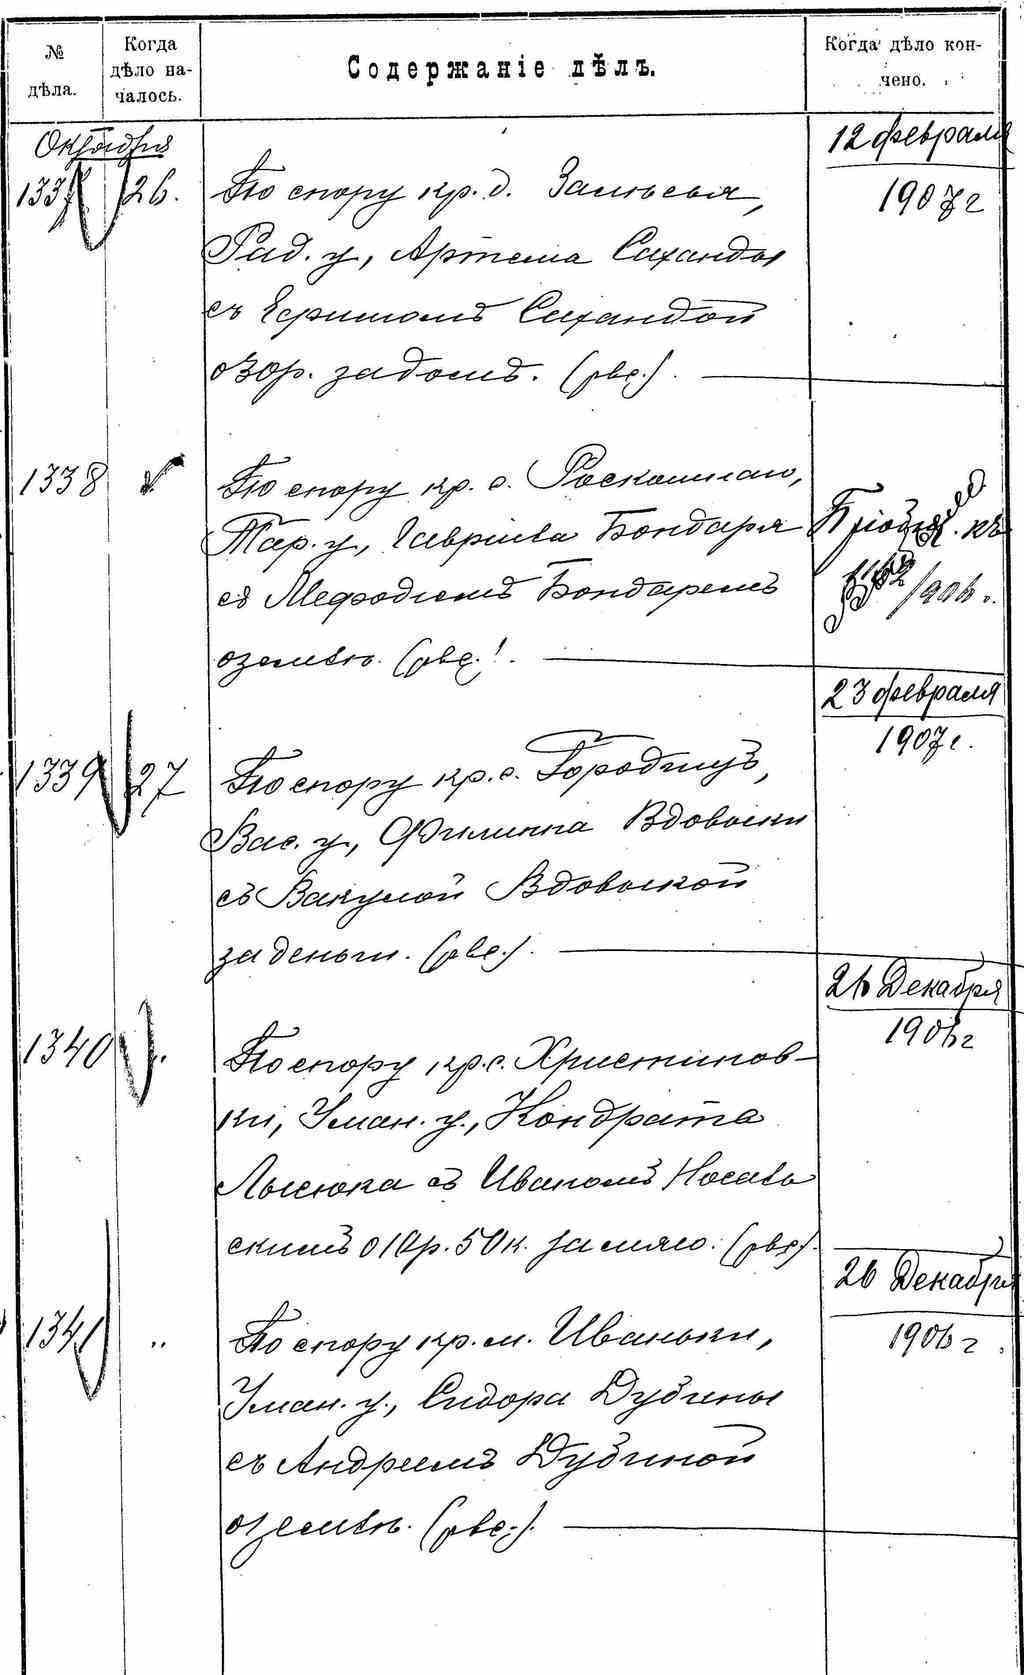 № дѣла.
Когда дѣло на-
чалось.
Содержаніе дѣлъ.
Когда дѣло кон-
чено.
Октября
1337 26.
По спору кр. д. Залѣсья,
Рад. у, Артема Саханды
съ Ефимомъ Сахандой
о 30 р. за домъ. (рвс.).
12 февраля
1907 г
1338
По спору кр. с. Роскошнаю,
Тар. у., Гавріила Бондаря
съ Мефодіемъ Бондаремъ
о землѣ. (рвс.).
къ
/906 г.
1339 27
По спору кр. с. Городищъ,
Вас. у., Филиппа Вдовыки
съ Вакулой Вдовыкой
за деньги. (рвс.).
23 февраля
1907 г.
1340 „
По спору кр. с. Христинов-
ки, Уман. у., Кондрата
Лысюка съ Иваномъ Носаль
скимъ о 10 р. 50 к. за (рвс.).
26 Декабря
1906 г
1341 „
По спору кр. м. Иваньки,
Уман. у., Сидора Дубины
съ Андреемъ Дубиной
о землѣ. (рвс.).
26 Декабря
1906 г.